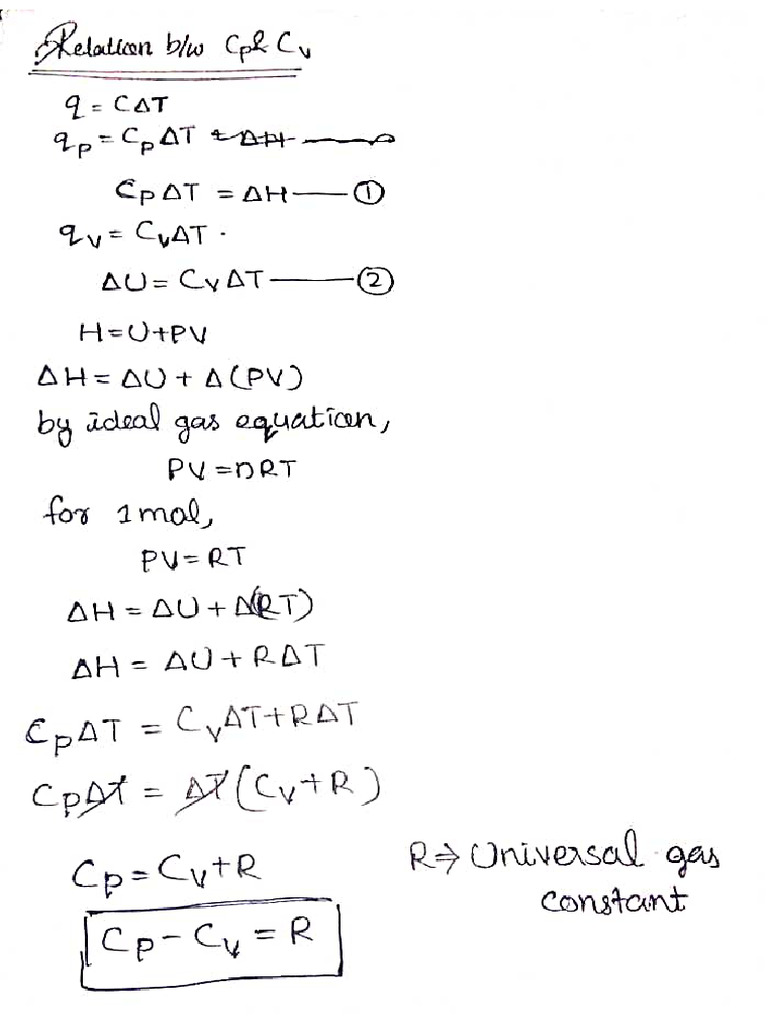 Relation b/w Cp & Cv
q = CΔT
qp = CpΔT = ΔH
CpΔT = ΔH — ①
qv = CvΔT.
ΔU = CvΔT — ②
H = U + PV
ΔH = ΔU + Δ(PV)
by ideal gas equation,
PV = nRT
for 1 mol,
PV = RT
ΔH = ΔU + Δ(RT)
ΔH = ΔU + RΔT
CpΔT = CvΔT + RΔT
CpΔT = ΔT(Cv + R)
Cp = Cv + R
R ⇒ Universal gas
constant
Cp - Cv = R